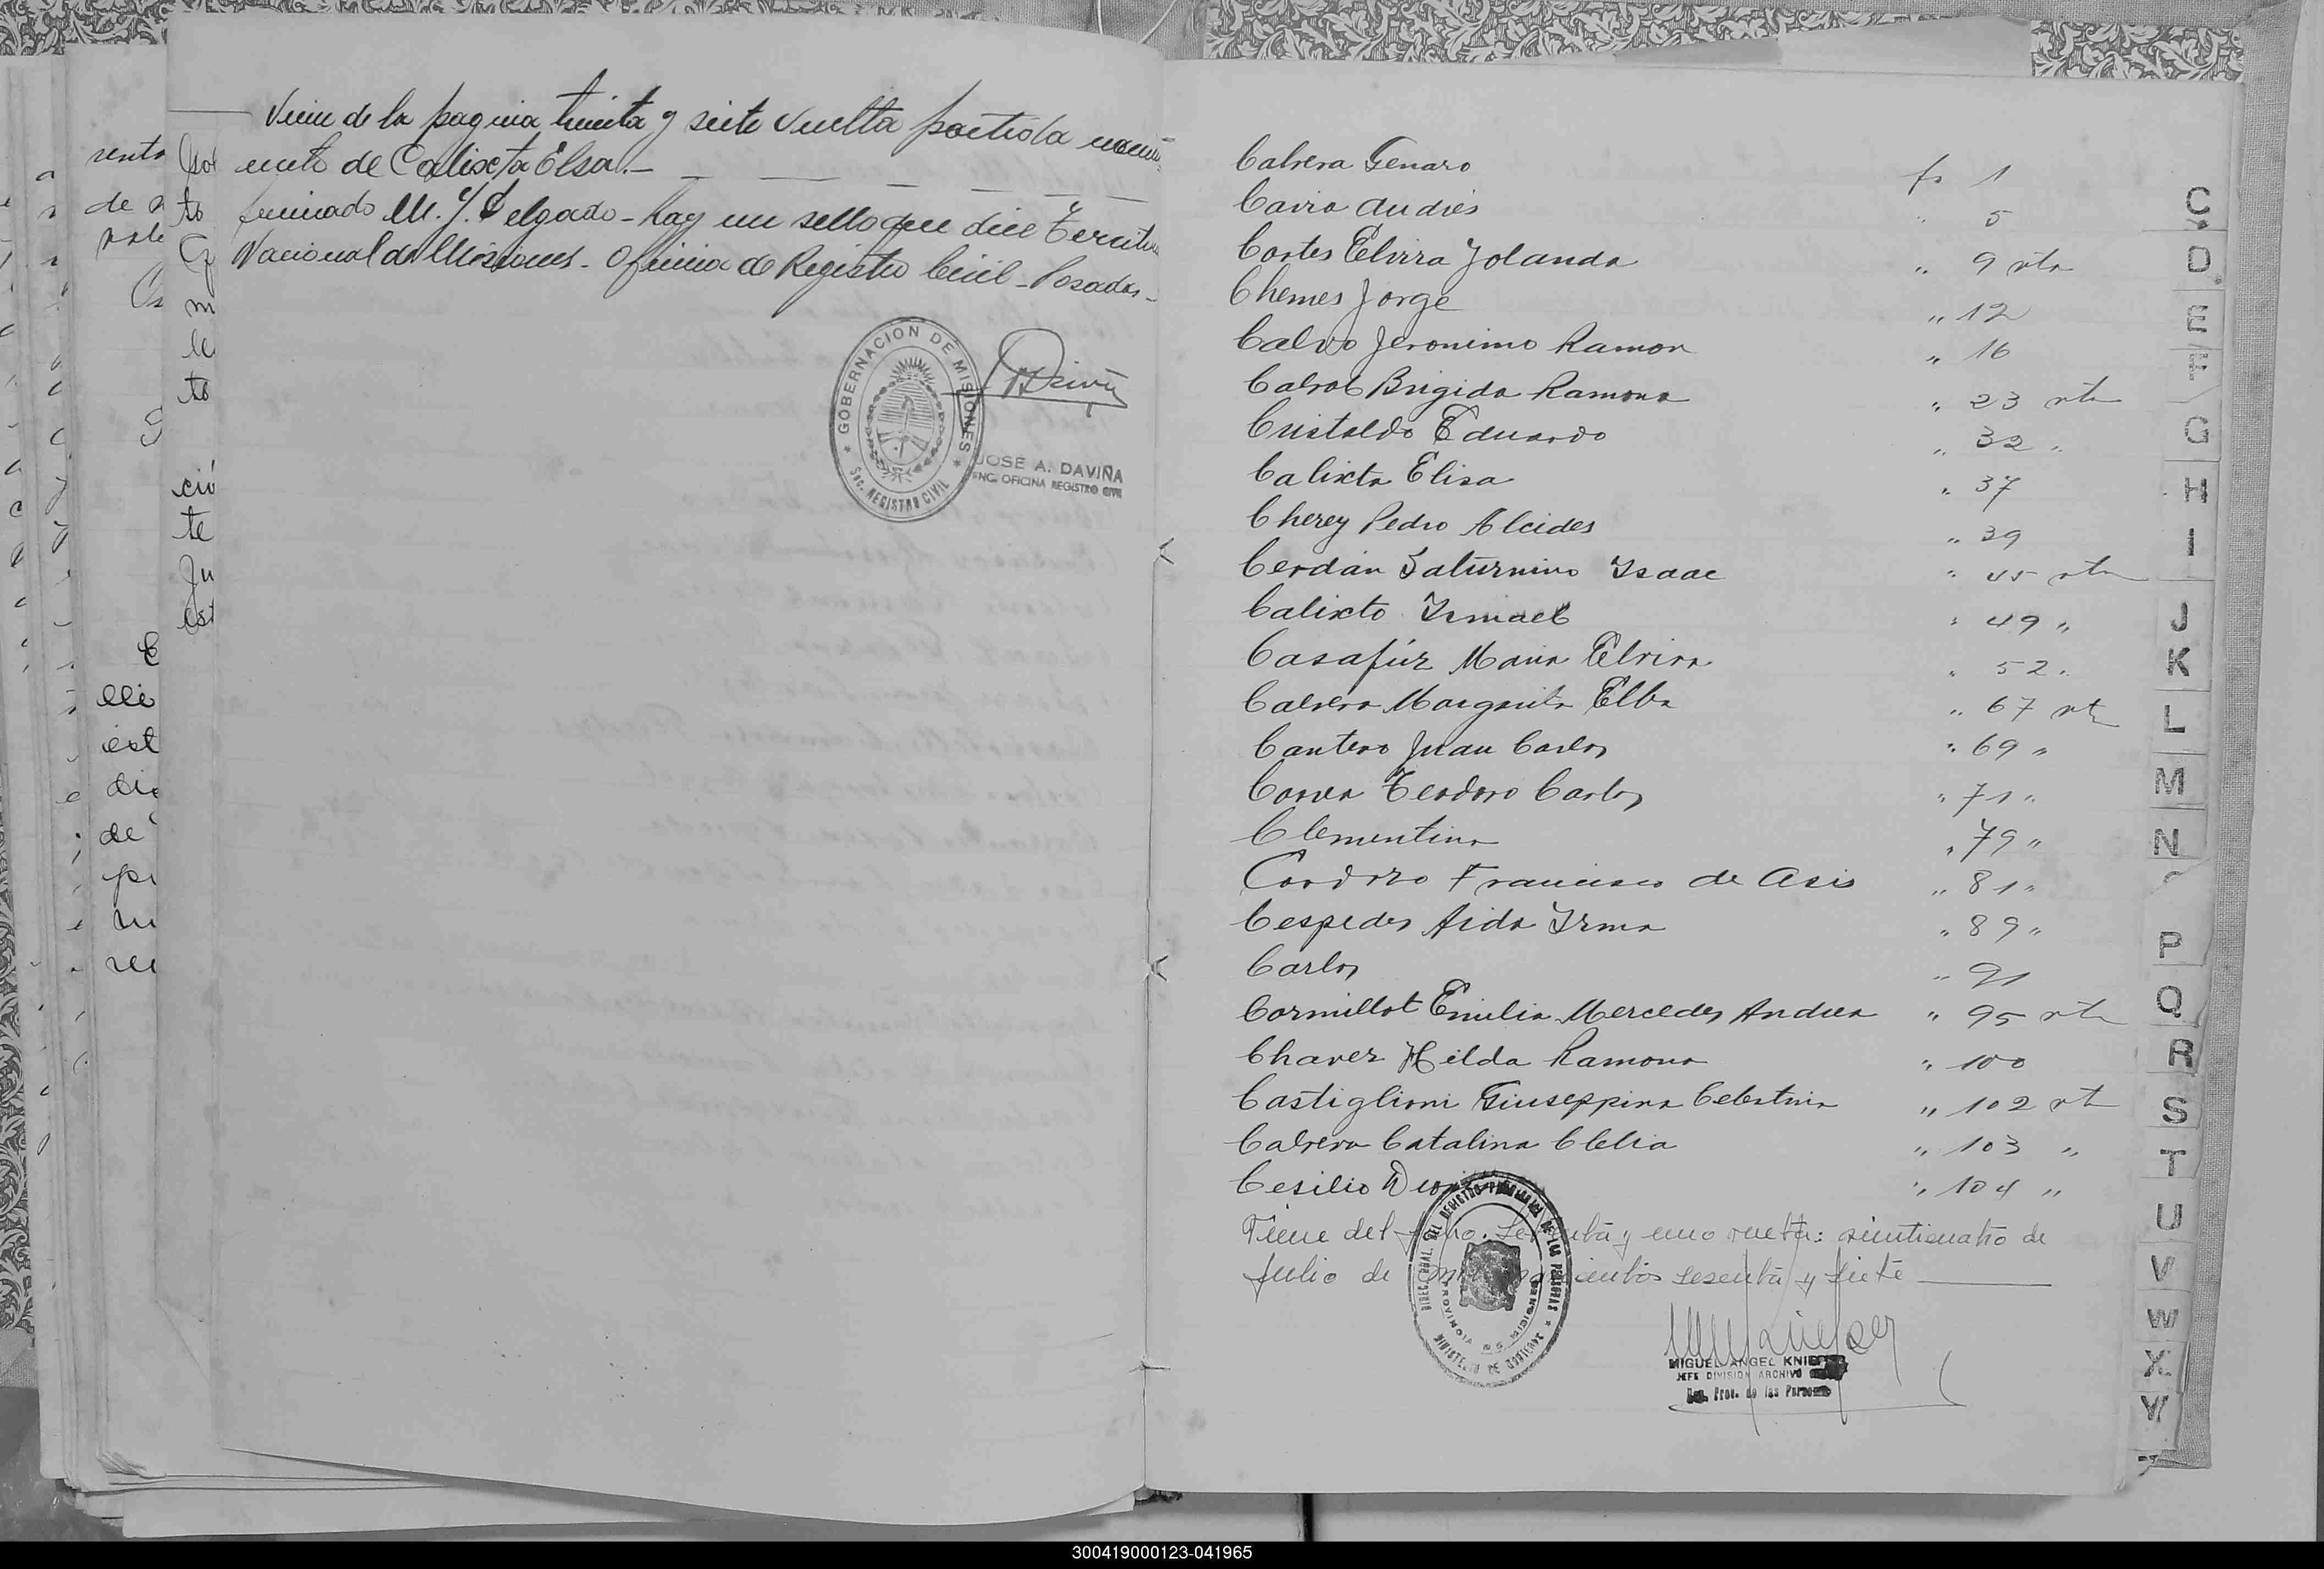 Viene de la pagina treinta y siete vuelta partida naci
miento de Calixta Elsa.—
firmado M. Y. Delgado - hay un sello que dice Territorio
Nacional de Misiones - Oficina de Registro Civil - Posadas -
GOBERNACION DE MISIONES
Sec. REGISTRO CIVIL
JOSÉ A. DAVIÑA
ENC. OFICINA REGISTRO CIVIL
Cabrera Genaro fo 1
Cairo Andrés " 5
Cortes Elvira Yolanda " 9 vta
Chemes Jorge " 12
Calvo Jeronimo Ramon " 16
Cabral Brigida Ramona " 23 vta
Cristaldo Eduardo " 32 "
Calixta Elisa " 37
Cherey Pedro Alcides " 39
Cerdán Saturnino Isaac " 45 vta
Calixto Ismael " 49 "
Casafúz Maria Elvira " 52 "
Cabrera Margarita Elba " 67 vta
Cantero Juan Carlos " 69 "
Correa Teodoro Carlos " 71 "
Clementina " 79 "
Cardozo Francisco de Asis " 81 "
Cespedes Aida Irma " 89 "
Carlos " 91
Cormillot Emilia Mercedes Andrea " 95 vta
Chavez Hilda Ramona " 100
Castiglioni Giuseppina Celestina " 102 vta
Cabrera Catalina Clelia " 103 "
Cesilio " 104 "
Viene del y uno vuelta: veinticuatro de
Julio de sesenta y siete
MIGUEL ANGEL
JEFE DIVISION ARCHIVO
Prov. de las Personas
C
D
E
F
G
H
I
J
K
L
M
N
P
Q
R
S
T
U
V
W
X
Y
300419000123-041965